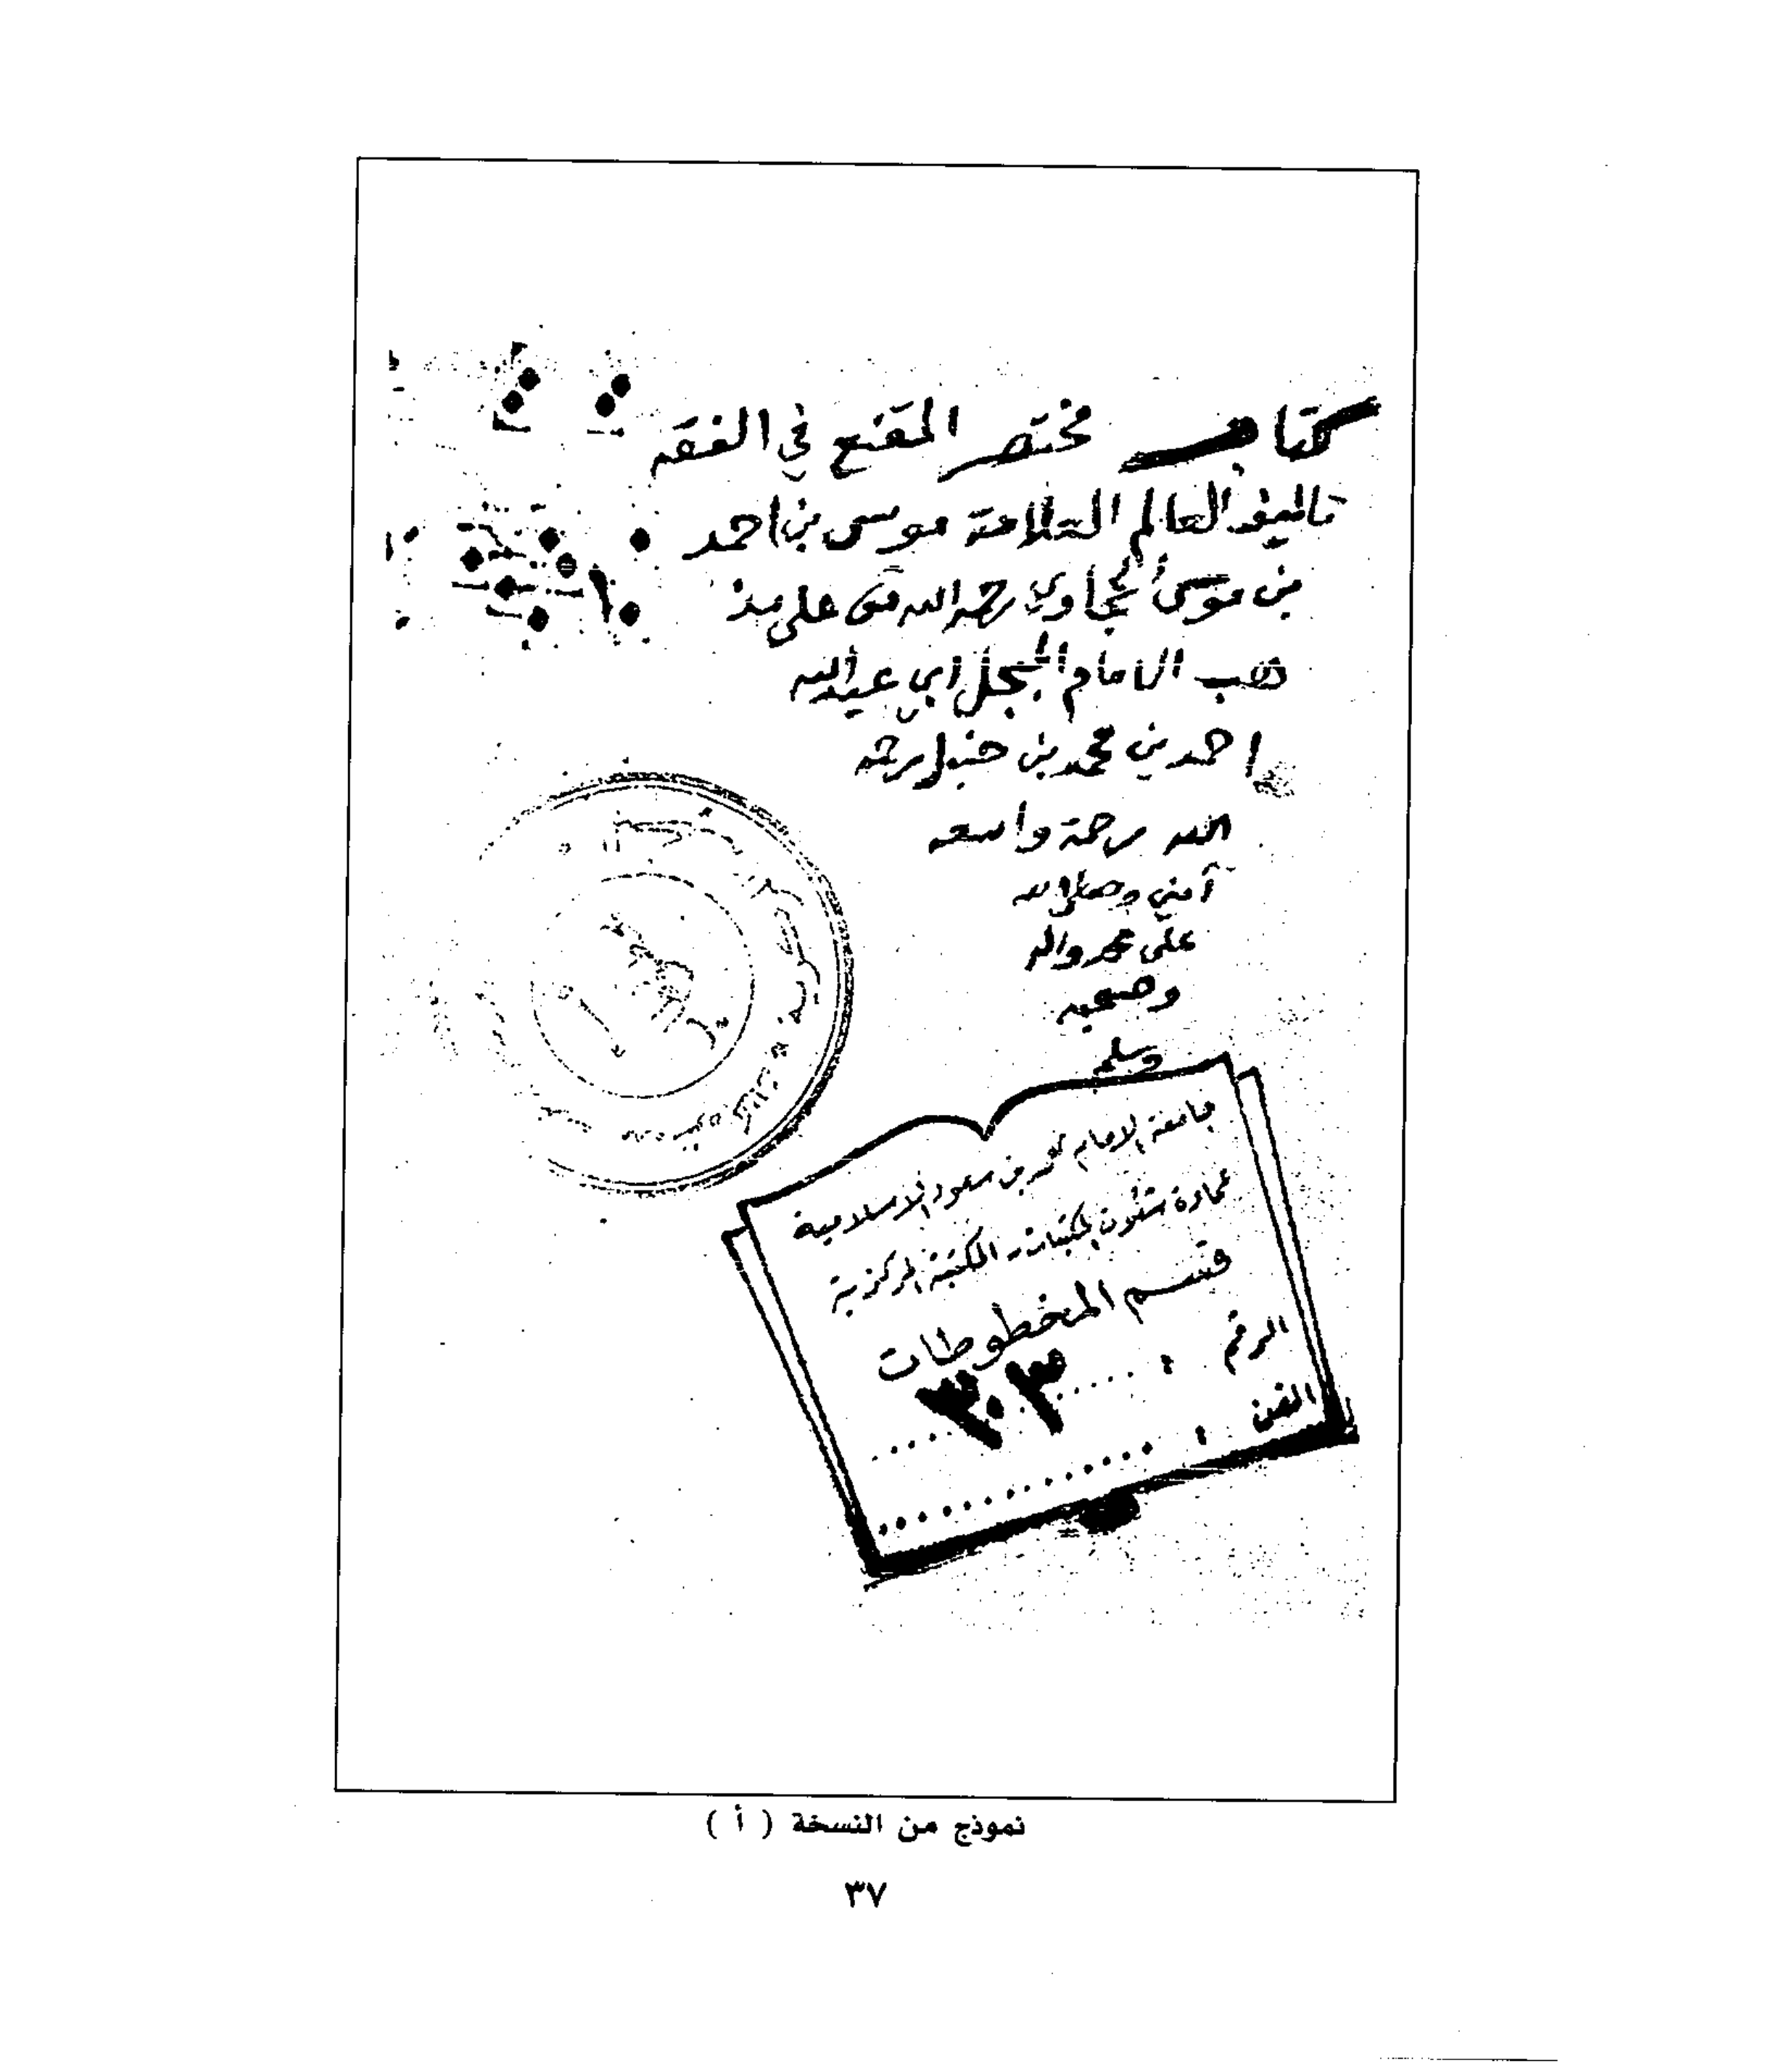 كتاب مختصر المقنع في الفقه
تاليف العالم العلامة موسى بن احمد
بن موسى الحجاوي رحمه الله على مذ
هب الامام المبجل ابي عبد الله
احمد بن محمد بن حنبل رحمه
الله رحمة واسعه
آمين وصلى الله
على محمد واله
وصحبه
وسلم
جامعة الامام محمد بن سعود الاسلامية
عمادة شئون المكتبات - المكتبة المركزية
قسم المخطوطات
الرقم : ٣٠٣
الفن :
نموذج من النسخة ( أ )
٣٧